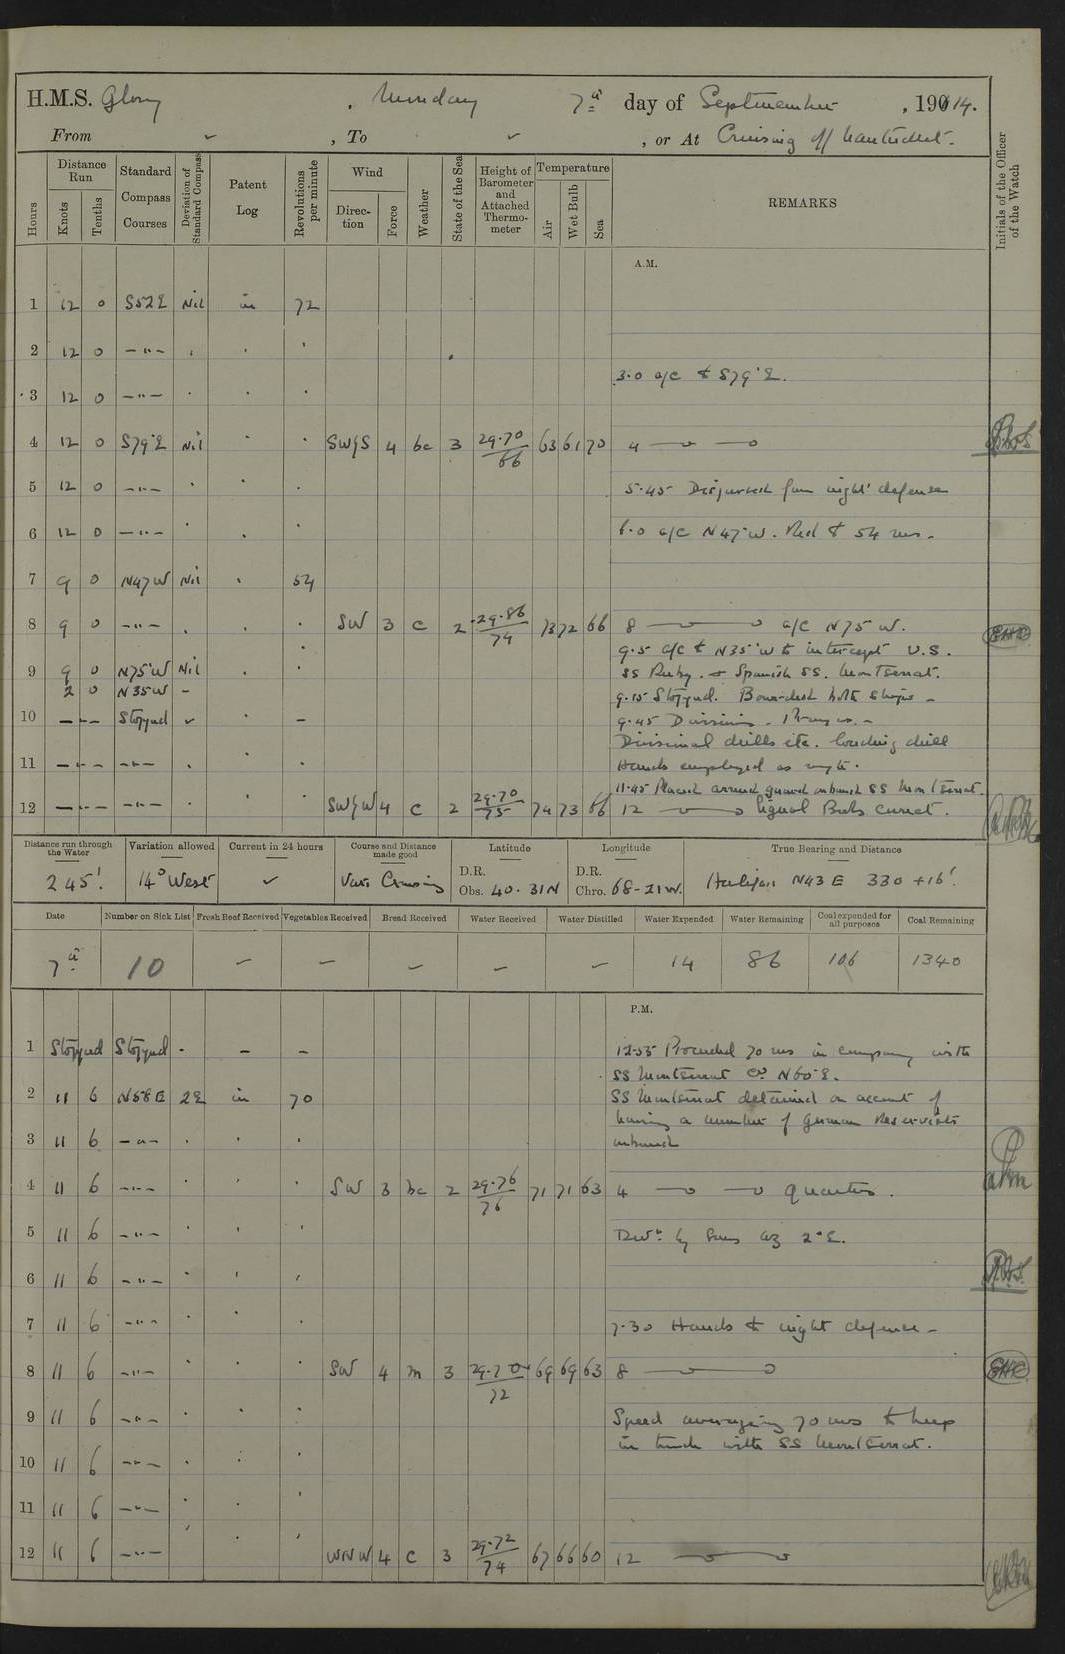 H.M.S. Glory , Monday 7th day of September , 1914.
From ✓ , To ✓ , or At Cruising off Nantucket.
Hours
Distance Run
Knots
Tenths
Standard Compass Courses
Deviation of Standard Compass
Patent Log
Revolutions per minute
Wind
Direction
Force
Weather
State of the Sea
Height of Barometer and Attached Thermometer
Temperature
Air
Wet Bulb
Sea
REMARKS
Initials of the Officer of the Watch
A.M.
1 12 0 S52E Nil in 72
2 12 0 — " —
3.0 a/c to S79°E.
3 12 0 — " —
4 12 0 S79°E Nil SW/S 4 bc 3 29.70/66 63 61 70 4
5 12 0 — " — 5.45 from night defence
6 12 0 — " — 6.0 a/c N47°W. Red to 54 revs.
7 9 0 N47W Nil 54
8 9 0 — " — SW 3 c 2 29.86/74 73 72 66 8 a/c N75°W.
9.5 a/c to N35°W to intercept U.S.
9 9 0 N75°W Nil SS Ruby. & Spanish SS. Montserrat.
2 0 N35W - 9.15 Stopped. Boarded both ships -
10 — " — Stopped ✓ - 9.45 Divisions. Prayers. -
Divisional drills etc. loading drill
11 — " — — " — Hands employed as reqte.
11.45 Placed armed guard onboard SS Montserrat.
12 — " — — " — SW/W 4 c 2 29.70/75 74 73 66 12 Signal Books correct.
Distance run through the Water
Variation allowed
Current in 24 hours
Course and Distance made good
Latitude
Longitude
True Bearing and Distance
245'. 14° West ✓ Vars Cruising
D.R.
Obs. 40.31N
D.R.
Chro. 68-21W.
Halifax N43E 330 + 16'.
Date
Number on Sick List
Fresh Beef Received
Vegetables Received
Bread Received
Water Received
Water Distilled
Water Expended
Water Remaining
Coal expended for all purposes
Coal Remaining
7th 10 – – – – – 14 86 106 1340
P.M.
1 Stopped Stopped - - - 12.55 Proceeded 70 revs in company with
SS Montserrat Co. N60°E.
2 11 6 N58E 2E in 70 SS Montserrat detained on account of
having a number of German Reservists
3 11 6 — " — onboard
4 11 6 — " — SW 3 bc 2 29.76/76 71 71 63 4 Quarters.
5 11 6 — " — Devn. by Suns az 2°E.
6 11 6 — " —
7 11 6 — " — 7.30 Hands to night defence -
8 11 6 — " — SW 4 m 3 29.70/72 69 69 63 8
9 11 6 — " — Speed averaging 70 revs to keep
in touch with SS Montserrat.
10 11 6 — " —
11 11 6 — " —
12 11 6 — " — WNW 4 c 3 29.72/74 67 66 60 12